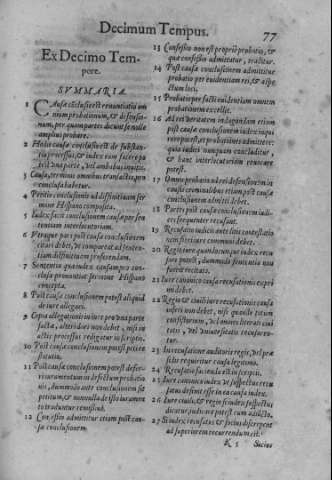 Decimum Tempus. 77
Ex Decimo Tem-
pore.
SVMMARIA.
1 Causæ conclusio est renuntiatio om
nium probationum, & defensio-
num, per quam partes dicunt se nolle
amplius probare.
2 Hodie causæ conclusio est de substan-
tia processus, & iudex eam facere po
terit una parte, vel ambabus inuitis.
3 Causa, terminis omnibus transactis, pro
conclusa habetur.
4
mine Hispano composita.
5 Iudex facit conclusionem causæ per sen
tentiam interlocutoriam.
6 Per quæ pars post causæ conclusionem
citari debet, ut compareat ad senten-
tiam diffinitiuam proferendam.
7 Sententia quomodo causam pro con-
clusa pronuntiat sermone Hispano
concepta.
8 Post causæ conclusionem potest aliquid
de iure allegari.
9 Copia allegationis in iure pro una parte
factæ, alteri dari non debet, nisi in
actis processus redigatur in scriptis.
10 Post causæ conclusionem potest peti re
stitutio.
11 Post causæ conclusionem potest deferri
iuramentum in defectum probatio
nis, dummodo ante conclusionem sit
petitum, & non nulla de isto iuramen
to traduntur remissiuè.
12 Confessio non etiam post cau-
sæ conclusionem.
13 Confessio non est propriè probatio, &
quæ confessio admittatur, traditur.
14 Post causæ conclusionem admittitur
probatio per euidentiam rei, & aspe
ctum loci.
15 Probatio per facti euidentiam omnem
probationem excellit.
16 Ad rei veritatem indagandam etiam
post causæ conclusionem iudex inqui
rere potest, et probationes admittere:
quia iudici nunquam concluditur,
& hanc interlocutoriam reuocare
potest.
17 Omnis probatio ad rei defensionem in
causis criminalibus etiam post causæ
conclusionem admitti debet.
18 Partes post causæ conclusionem iudi-
ces frequenter recusant.
19 Recusatio iudicis ante litis contestatio
nem fieri iure communi debet.
20 Regio iure quandocunque iudex recu
sare potest, dummodo sententia non
fuerit recitata.
21 Iure canonico causa recusationis expri
mi debet.
22 Regio & ciuili iure recusationis causa
inseri non debet, nisi quoniam totum
consistorium, vel omnes literati ciui
tatis, vel vniuersitatis recusaren-
tur.
23 In recusatione auditoris regis, vel præ
sidis requiritur causa expressa.
24 Recusatio facienda est in scriptis.
25 Iure canonico index vt suspectus recu
satus desinit esse in ea causa iudex.
26 Iure ciuili, & regio si iudex suspectus
dicatur, iudicare potest cum adiuncto.
27 Si iudex recusatus & socius discrepent
ad superiorem recurrendum est.
K 5 Socius